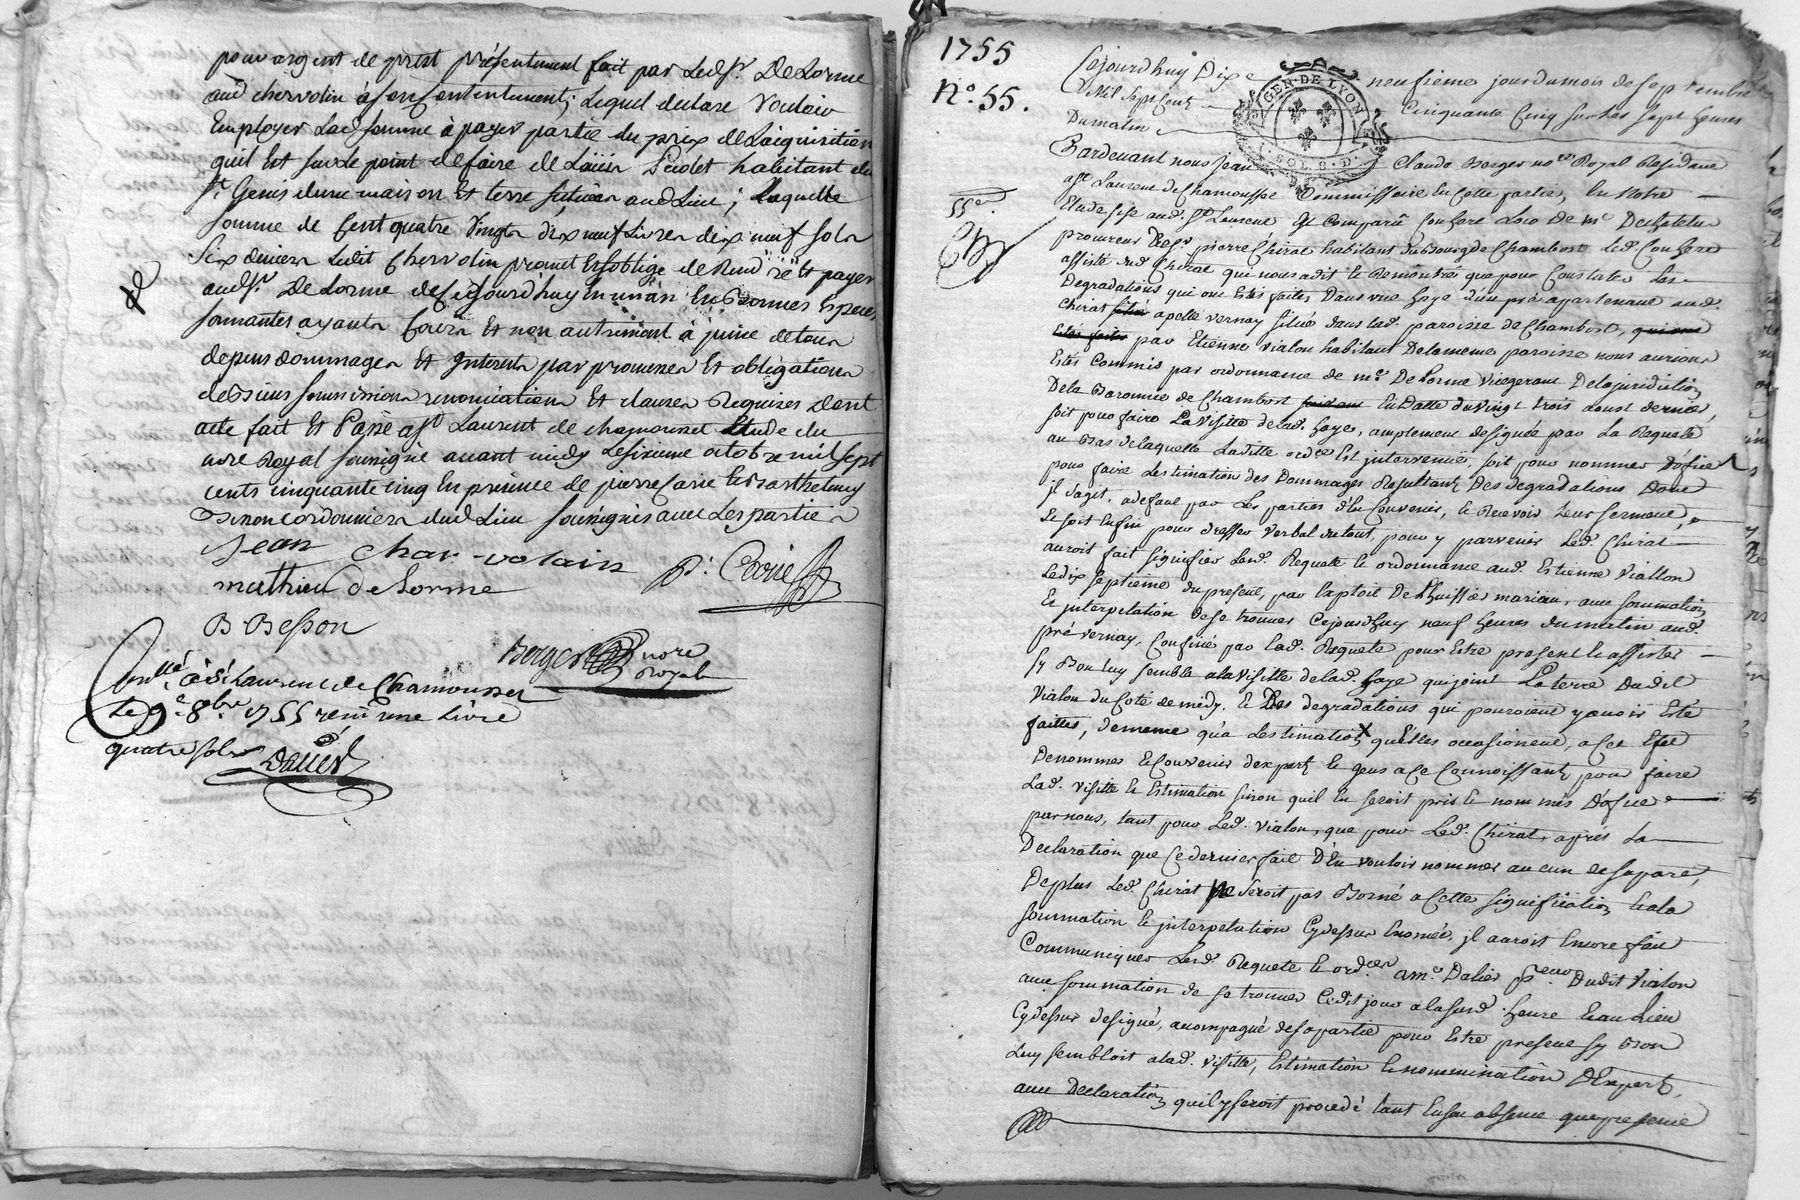 pour argent de prest présentement fait par Ledt Sr. DeLorme
aud chervolin àson Contentement; Lequel declare Vouloir
Employer Lad. somme à payer partie du prix deLaiquisition
quil Est sur le point defaire de habitant de
St. Genis dune maison Et terre scituées aud Lieu; Laquelle
somme de Cent quatre Vingts dix neuf Livres dix neuf sols
Six deniers Ledit Chervolin promet Et soblige de Rendre Et payer
aud Sr. DeLorme deCejourdhuy En unan En Bonnes Especes
sonnantes ayants Cours Et non autrement à peine detous
depens dommages Et Interets par promesses Et obligations
dessiens soumissions renonciations Et clauses Requises Dont
acte fait Et Passé a St. Laurent de chamousset Etude du
nore Royal soussigné avant midy Lesixieme octobre mil sept
cents cinquante cinq En presence de pierre Carrie Et Barthelemy
Besson cordonniers dud. Lieu soussignés avec Les parties
Jean char-volain
mathieu deLorme
B Besson
Berger nore
Royal
Conllé à St Laurent de Chamousset
Le 9e. 8bre 1755 reçu une Livre
quatre sols
1755
No. 55.
Cejourdhuy Dixe neufieme jour du mois de septembre
Mil sept cent Cinquante Cinq sur les sept heures
Du matin
GEN. DE LYON
Pardevant nous jean Claude Berger nore Royal Residant
a St. Laurent de Chamousset Commissaire En Cette partie, En Notre
Etude sise aud. St. Laurent Est Comparû
procureur de Sr. pierre Chirat habitant du Bourg de Chambost
assisté dud Chirat qui nous a dit Et Remontré que pour Constater Les
Degradations qui ont Estés faites Dans une haye d'un pré apartenant aud.
Chirat apellé vernay située dans lad. paroisse de Chambost,
par Etienne vialon habitant Delameme paroisse nous aurions
Estés Commis par ordonnance de me. DeLorme vicegerant Dela juridiction
Dela Baronnie de Chambost En Datte du vingt trois aoust dernier,
soit pour faire La Visitte de lad. haye, amplement designée par La Requete
au Bas de laquelle Laditte ordce Est intervenüe, soit pour nommer d'ofice
pour faire Lestimation des Dommages Resultants Des degradations Dont
jl sagit, adefaut par Les parties d'En Convenir, Et Recevoir Leur serment,
Et soit Enfin pour dresser verbal du tout, pour y parvenir Led. Chirat
auroit fait signifier Lesd. Requete Et ordonnance aud. Estienne Viallon
Ledix septieme du present, par Exploit de Lhuissier marion, avec sommation
Et jnterpelation de se trouver Cejourdhuy neuf heures du matin aud.
pré vernay, Confiné par Lad. Requete pour Estre present Et assister
sy Bon luy semble ala visitte de lad. haye qui joint La terre Dudit
Vialon du Coté de midy, Et Des degradations qui pouroient y avoir Esté
faittes, de meme qu'a Lestimation qu'elles occasionent, a Cet Efet
De nommer Et Convenir dexperts Et gens a Ce Connoissants pour faire
Lad. visitte Et Estimation sinon quil En seroit pris Et nommés D'ofice
par nous, tant pour Led. Vialon, que pour Led. Chirat, après La
Declaration que Ce dernier fait D'En vouloir nommer aucun de sa part,
De plus Led. Chirat ne seroit pas Borné a Cette signification Et ala
sommation Et jnterpelation Cydessus Enoncée, jl auroit Encore fait
Communiquer Lesd. Requete Et ordces a me. Dalier pceur Dudit Vialon
avec sommation de se trouver Cedit jour a lasusd. heure Et au Lieu
Cydessus designé, acompagné desapartie pour Estre present sy Bon
Luy sembloit a lad. visitte, Estimation Et nommination D'Experts,
avec Declaration quil y seroit procedé tant En son absence que presence